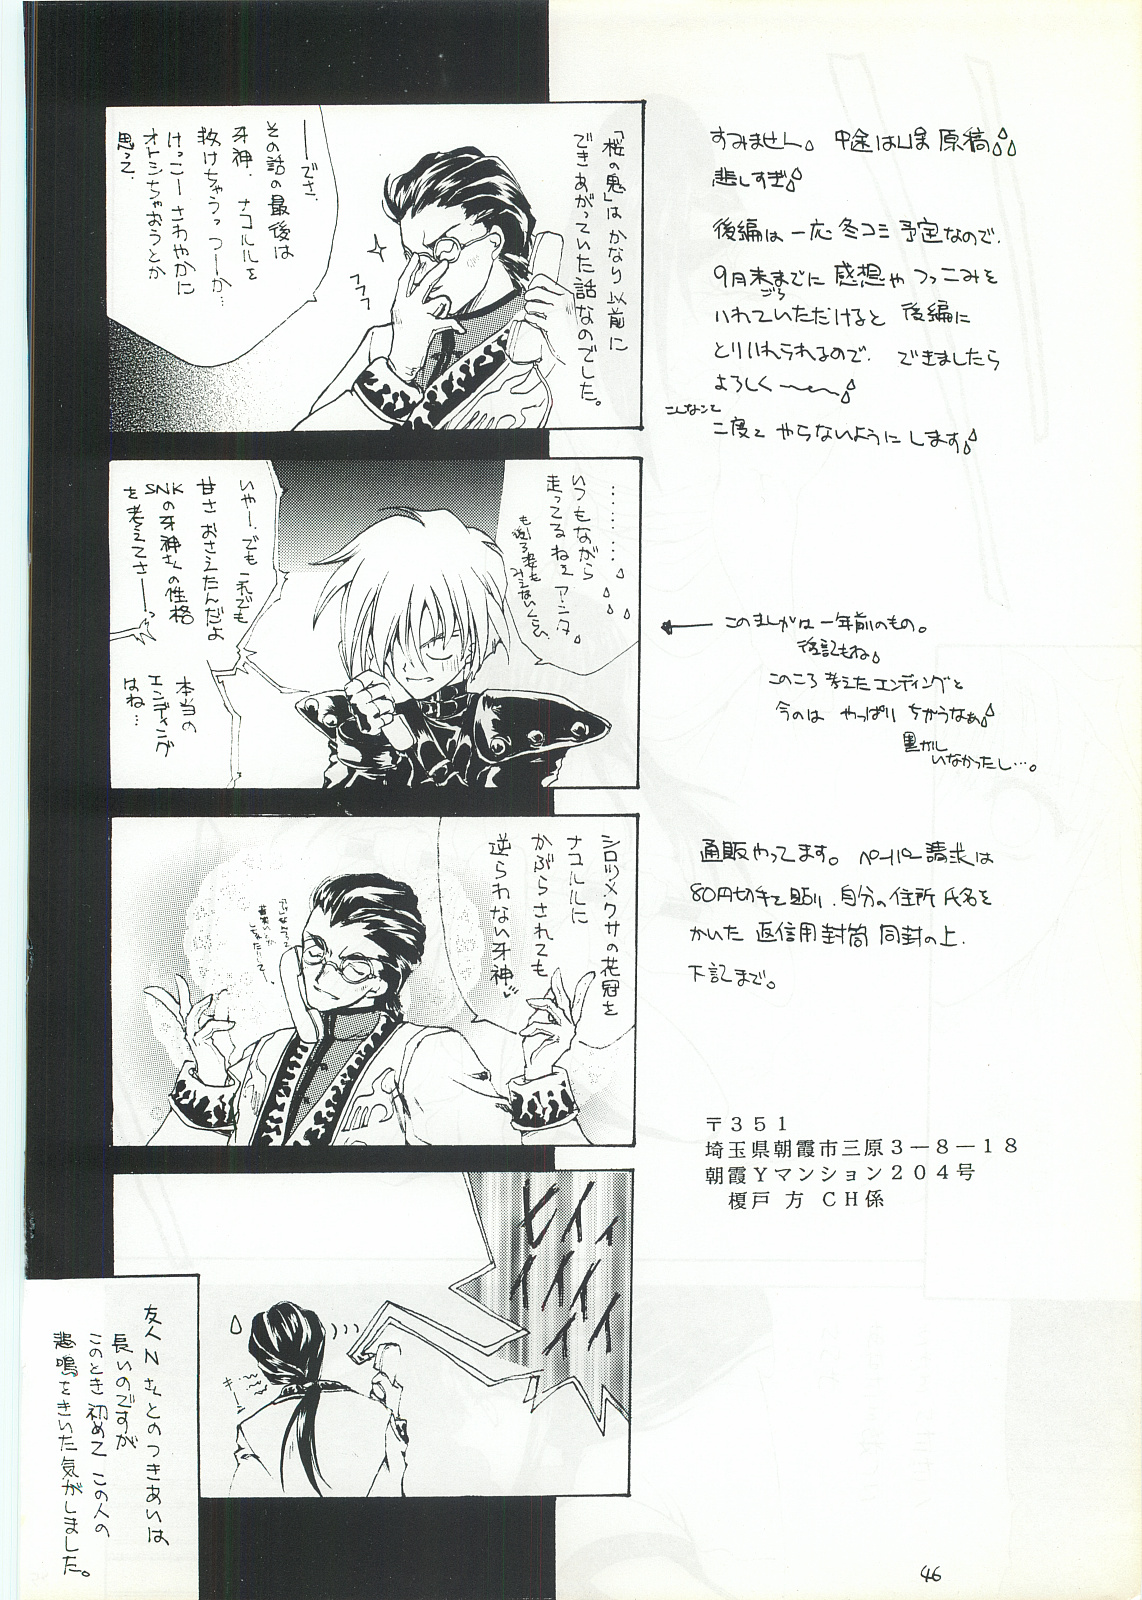 「桜の鬼」は かなり 以前に
できあがっていた話なのでした。
──でさ、
その話の最後は
牙神、ナコルルを
救けちゃうっ つーか…
けっこー さわやかに
オトシちゃおうとか
思って、
フフフ
いつもながら
走ってるねぇ アンタ
もしろ姿も
みえないくらい
いやー、でも これでも
甘さ おさえたんだよ
SNKの牙神さんの性格
を考えてさ──っ
本当の
エンディング
はね…
シロツメクサの花冠を
ナコルルに
かぶらされても
逆らわない牙神
ヒイィ
イイイイ
イイ
キーン
友人Nさんとのつきあいは
長いのですが
このとき初めて この人の
悲鳴をきいた気がしました。
すみません。 中途はしまる 原稿
悲しすぎ
後編は 一応 冬コミ 予定なので、
9月末までに 感想や つっこみを
ごろ
いれていただけると 後編に
とりいれられるので、 できましたら
よろしく〜〜
こんなこと
二度と やらないように します
← このまんがは 一年前のもの。
後記もね
このころ 考えた エンディングと
今のは やっぱり ちがうなぁ
黒がし
いなかったし…。
通販やってます。 ペーパー請求は
80円切手を貼り、自分の住所 氏名を
かいた 返信用封筒 同封の上、
下記まで。
〒351
埼玉県朝霞市三原3－8－18
朝霞Yマンション204号
榎戸 方 CH係
46